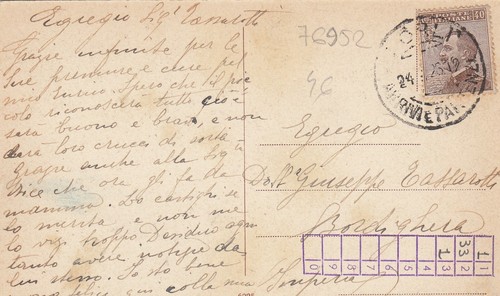 Egregio Sig. Tassarotti
Grazie infinite per le
Sue premure e cure pel
mio Spero che il pic-
colo riconoscerà tutto ciò e
sarà buono e bravo, e non
darà loro crucci di sorta
grazie anche alla Sig.ra
che ora gli fa da
mamma. Lo castighi se
lo merita e non me
lo vizi troppo. Desidero ogni
tanto avere notizie da
lui stesso. Io sto bene
felice qui colla mia
76952
46
POSTE ITALIANE
40
24
Egregio
Dott. Giuseppe Tassarotti
Bordighera
Imperia
1 1
2 33
3 1
4
5
6
7
8
9
0